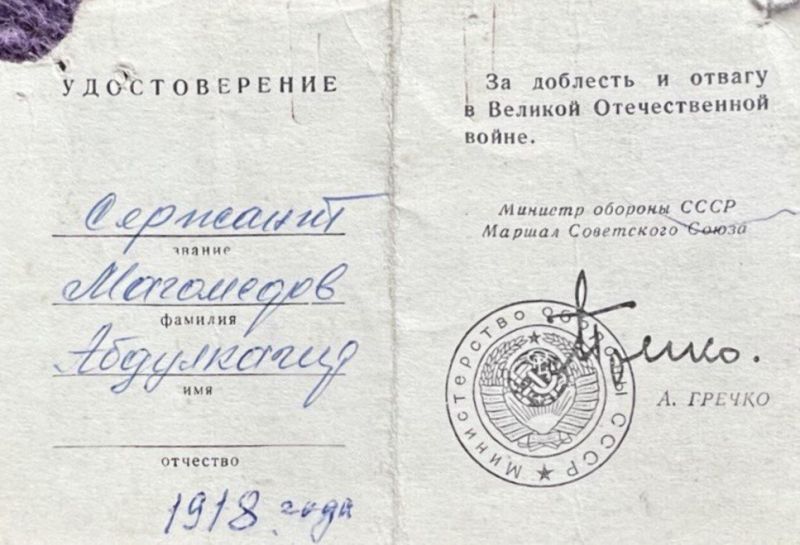 УДОСТОВЕРЕНИЕ
Сержант
звание
Магомедов
фамилия
Абдулкагир
имя
отчество
1918 года
За доблесть и отвагу
в Великой Отечественной
войне.
Министр обороны СССР
Маршал Советского Союза
Министерство Обороны СССР
А. ГРЕЧКО